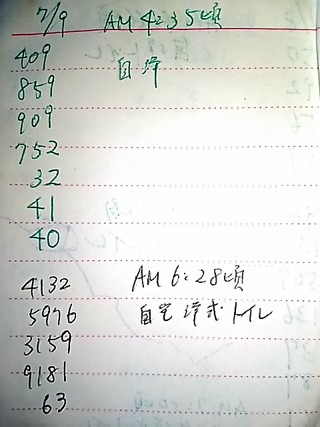 7/9 AM 4:35頃
409
859
909
752
32
41
40
4132 AM 6:28頃
5976 自宅 洋式トイレ
3159
9181
63